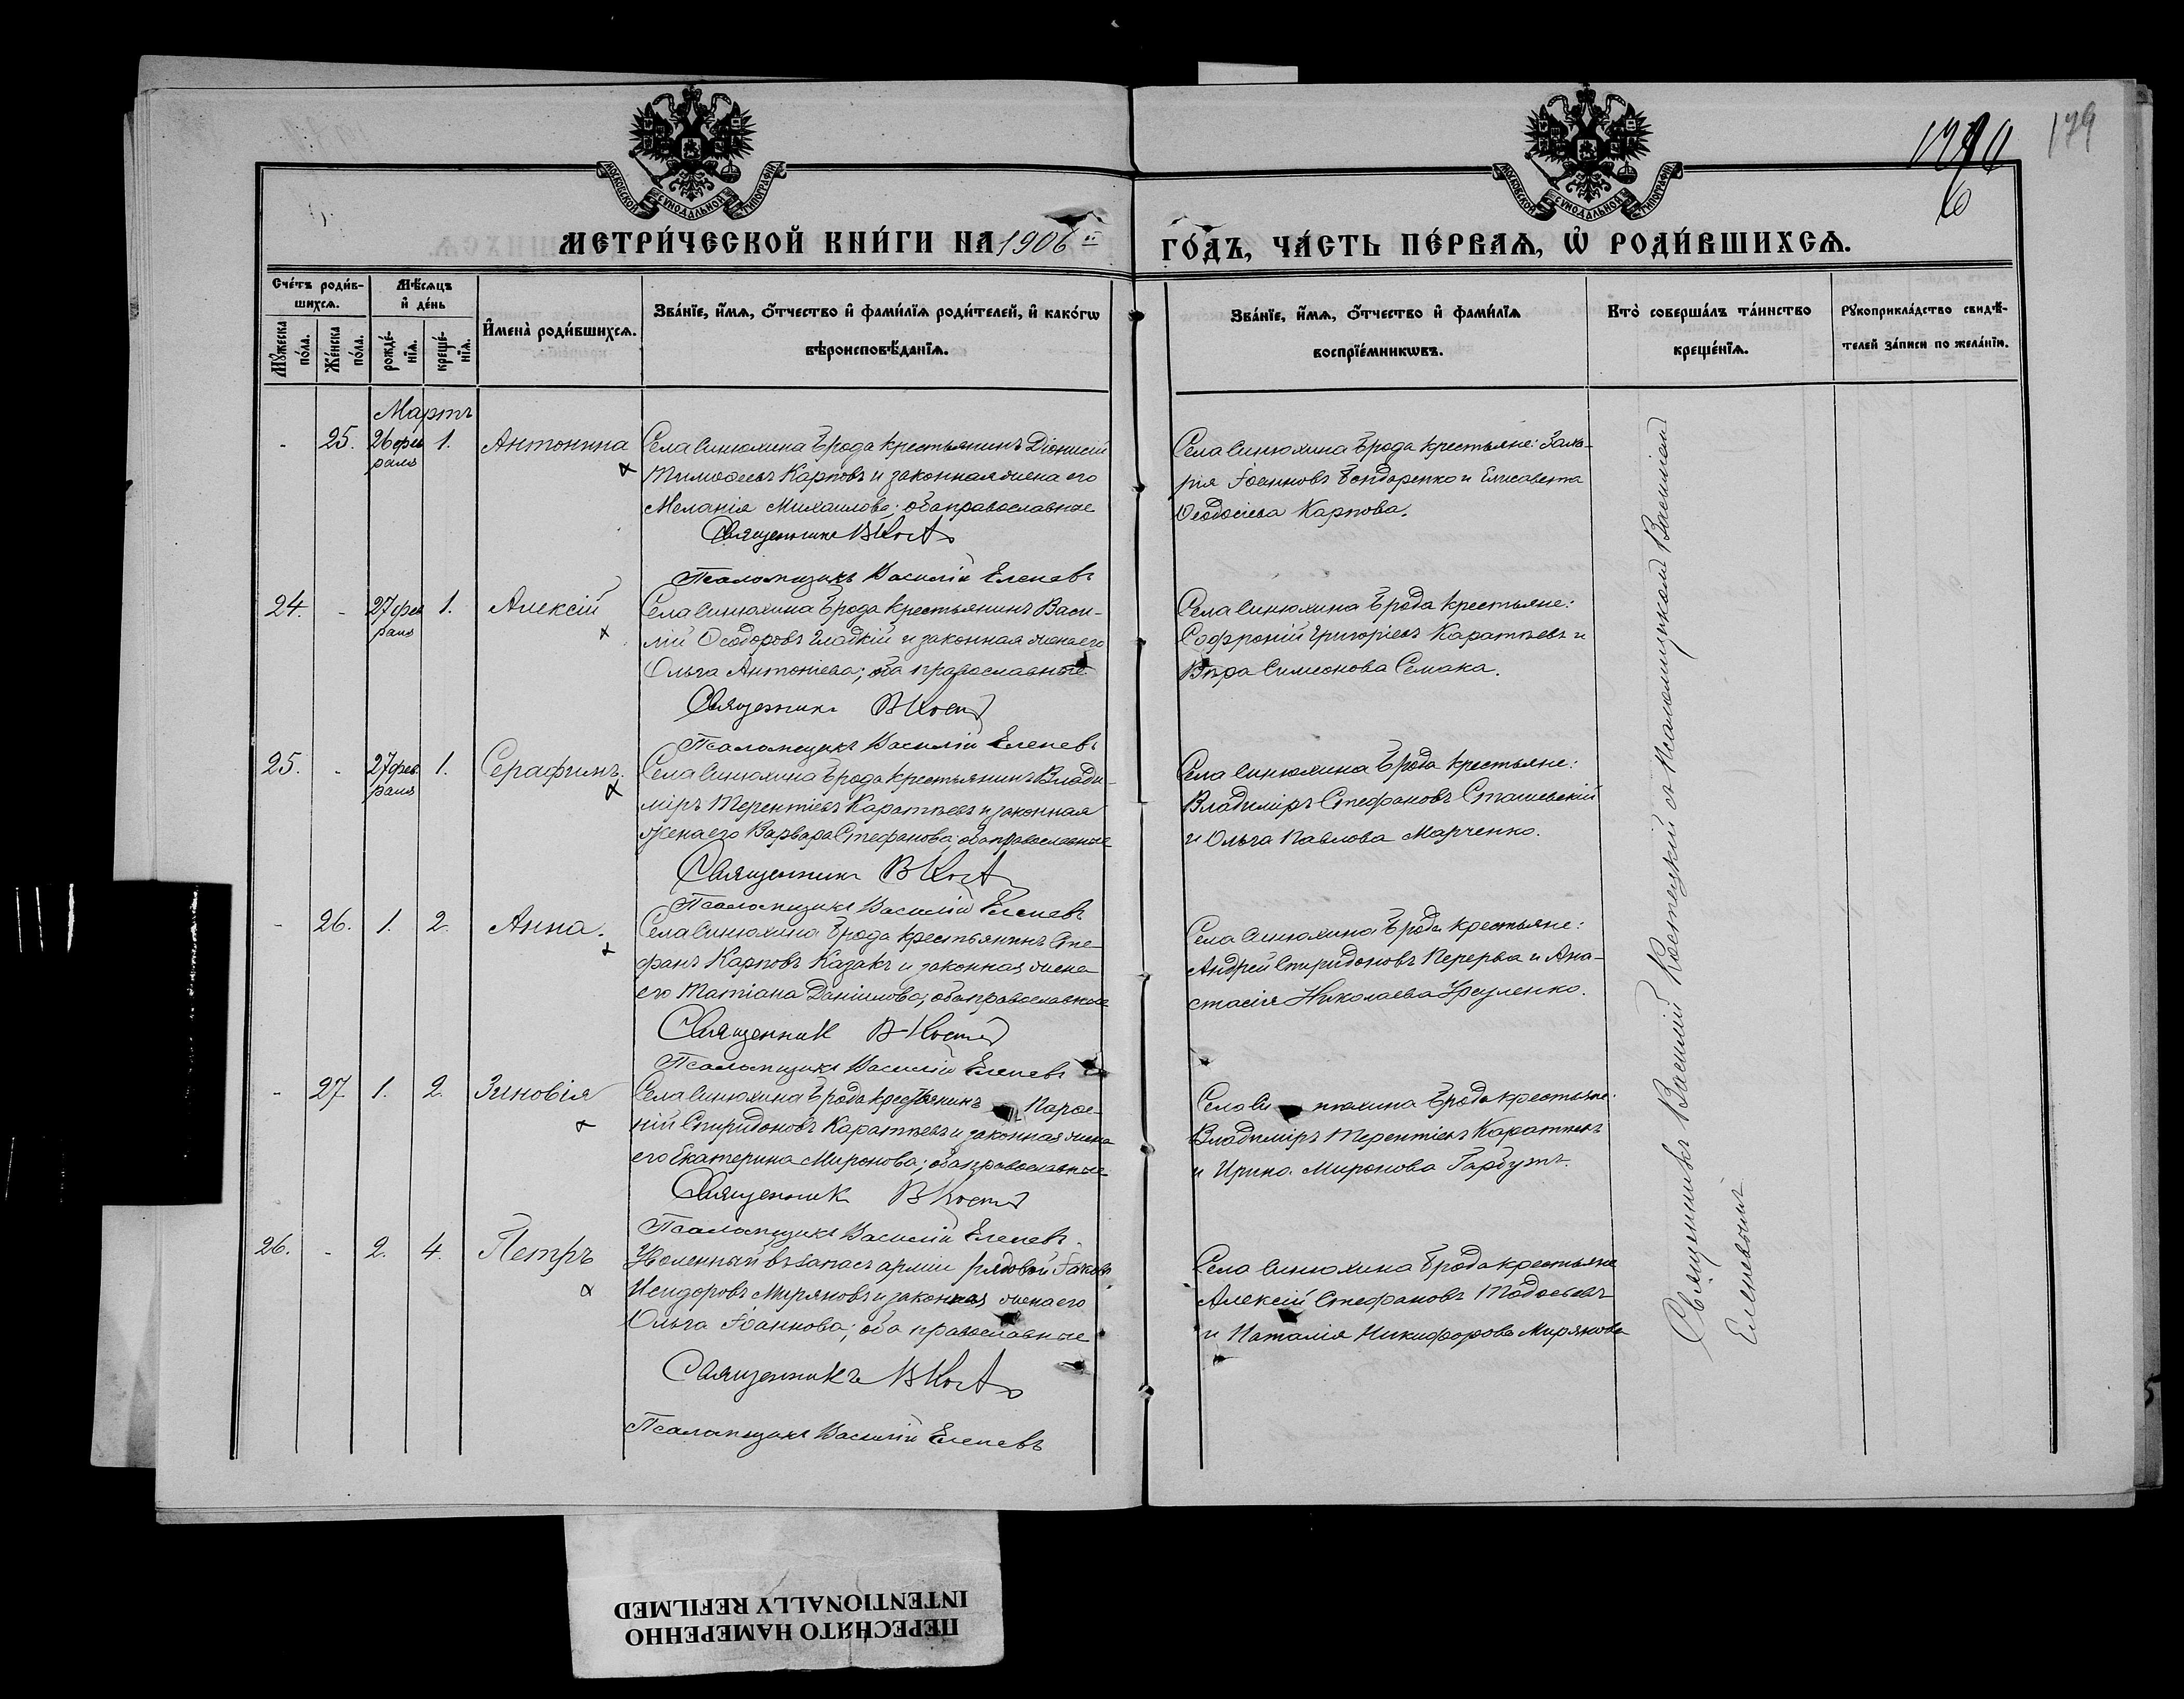 МОСКОВСКОЙ СѴНОДАЛЬНОЙ ТИПОГРАФІИ
МОСКОВСКОЙ СѴНОДАЛЬНОЙ ТИПОГРАФІИ
179
6
МЕТРИ́ЧЕСКОЙ КНИ́ГИ НА 1906 й
ГО́ДЪ, ЧА́СТЬ ПЕ́РВАѦ, Ѡ҆ РОДИ́ВШИХСѦ.
Сче́тъ роди́в-
шихсѧ.
Мѣ́сѧцъ
и҆ де́нь
Мꙋ́жеска
по́ла.
Же́нска
по́ла.
рожде́-
нїѧ.
креще́-
нїѧ.
И҆мена̀ роди́вшихсѧ.
Зва́нїе, и҆́мѧ, ѻ҆́тчество и҆ фами́лїѧ роди́телей, и҆ како́гѡ
вѣроисповѣ́данїѧ.
Зва́нїе, и҆́мѧ, ѻ҆́тчество и҆ фами́лїѧ
воспрїе́мникѡвъ.
Кто̀ соверша́лъ та́инство
креще́нїѧ.
Рꙋкоприкла́дство свидѣ́-
телей за́писи по жела́нїю.
Мартъ
- 25. 26 фев
раля 1. Антонина
Села Синюхина Брода крестьянинъ Діонисій
Тимоѳеевъ Карповъ и законная жена его
Меланія Михаилова; оба православные
Священникъ В Кост
Псаломщикъ Василій Еленевъ
Села Синюхина Брода крестьяне: Заха-
рія Іоанновъ Бондаренко и Елисавета
Ѳеодосіева Карпова.
24. - 27 фев
раля 1. Алексій
Села Синюхина Брода крестьянинъ Васи-
лій Ѳеодоровъ Гладкій и законная жена его
Ольга Антоніева; оба православные
Священникъ В Кост
Псаломщикъ Василій Еленевъ
Села Синюхина Брода крестьяне:
Софроній Григоріевъ Каратѣевъ и
Вѣра Симеонова Семака.
25. - 27 фев.
раля 1. Серафимъ.
Села Синюхина Брода крестьянинъ Влади-
міръ Терентіевъ Каратѣевъ и законная
жена его Варвара Стефанова; оба православные
Священникъ В Кост
Псаломщикъ Василій Еленевъ
Села Синюхина Брода крестьяне:
Владиміръ Стефановъ Сташевскій
и Ольга Павлова Марченко.
- 26. 1. 2. Анна.
Села Синюхина Брода крестьянинъ Сте-
фанъ Карповъ Казакъ и законная жена
его Татіана Даніилова; оба православные
Священник В Кост
Псаломщикъ Василій Еленевъ
Села Синюхина Брода крестьяне:
Андрей Спиридоновъ Перерва и Ана-
стасія Николаева
- 27. 1. 2. Зиновія
Села Синюхина Брода крестьянинъ Парѳе-
ній Спиридоновъ Каратѣевъ и законная жена
его Екатерина Миронова; оба православные
Священник В Кост
Псаломщикъ Василій Еленевъ
Села Синюхина Брода крестьяне:
Владиміръ Терентіевъ Каратѣевъ
и Ирина Миронова Гарбузъ.
26. - 2. 4. Петръ
Уволенный въ запасъ арміи рядовой Іаковъ
Исидоровъ Миряновъ и законная жена его
Ольга Іоаннова; оба православные
Священникъ В Кост
Псаломщикъ Василій Еленевъ
Села Синюхина Брода крестьяне
Алексій Стефановъ
и Наталія Никифорова Мирянова
Священникъ Василій Костецкій съ псаломщикомъ Василіемъ
Еленевымъ
ПЕРЕСНЯТО НАМЕРЕННО
INTENTIONALLY REFILMED